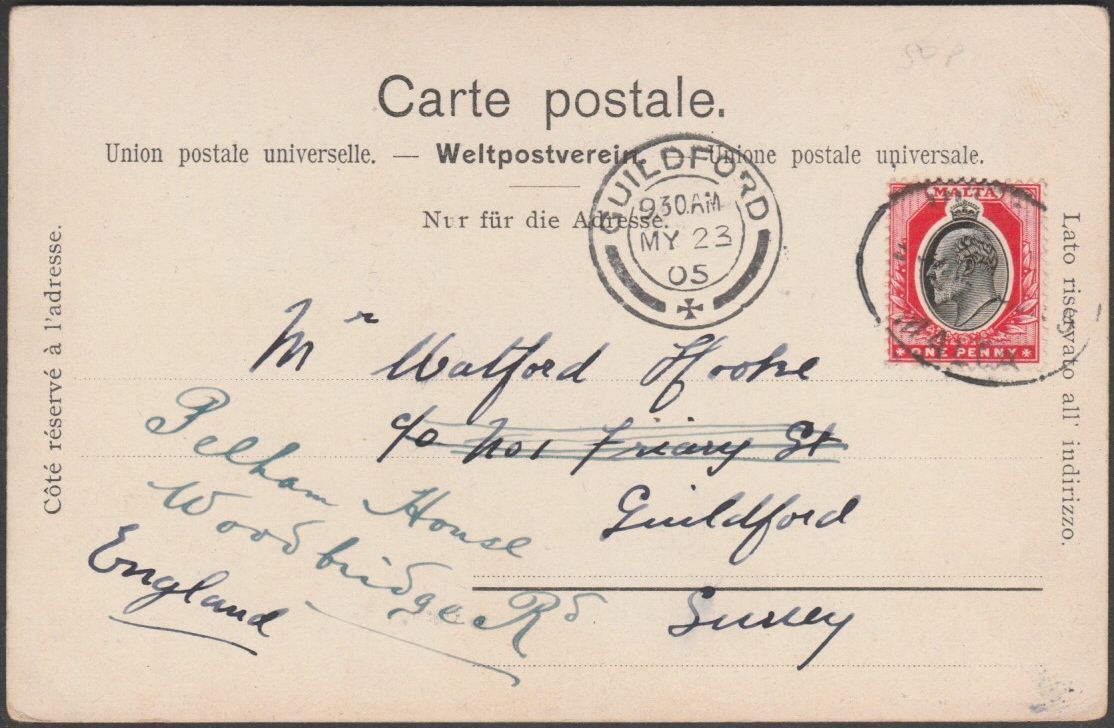 Carte postale.
Union postale universelle. — Weltpostverein. — Unione postale universale.
Nur für die Adresse.
Côté réservé à l'adresse.
Lato riservato all' indirizzo.
GUILDFORD
9 30 AM
MY 23
05
MALTA
ONE PENNY
MALTA
Mr Watford Hooke
c/o No 1 Friary St
Guildford
Surrey
England
Pelham House
Woodbridge Rd
50p